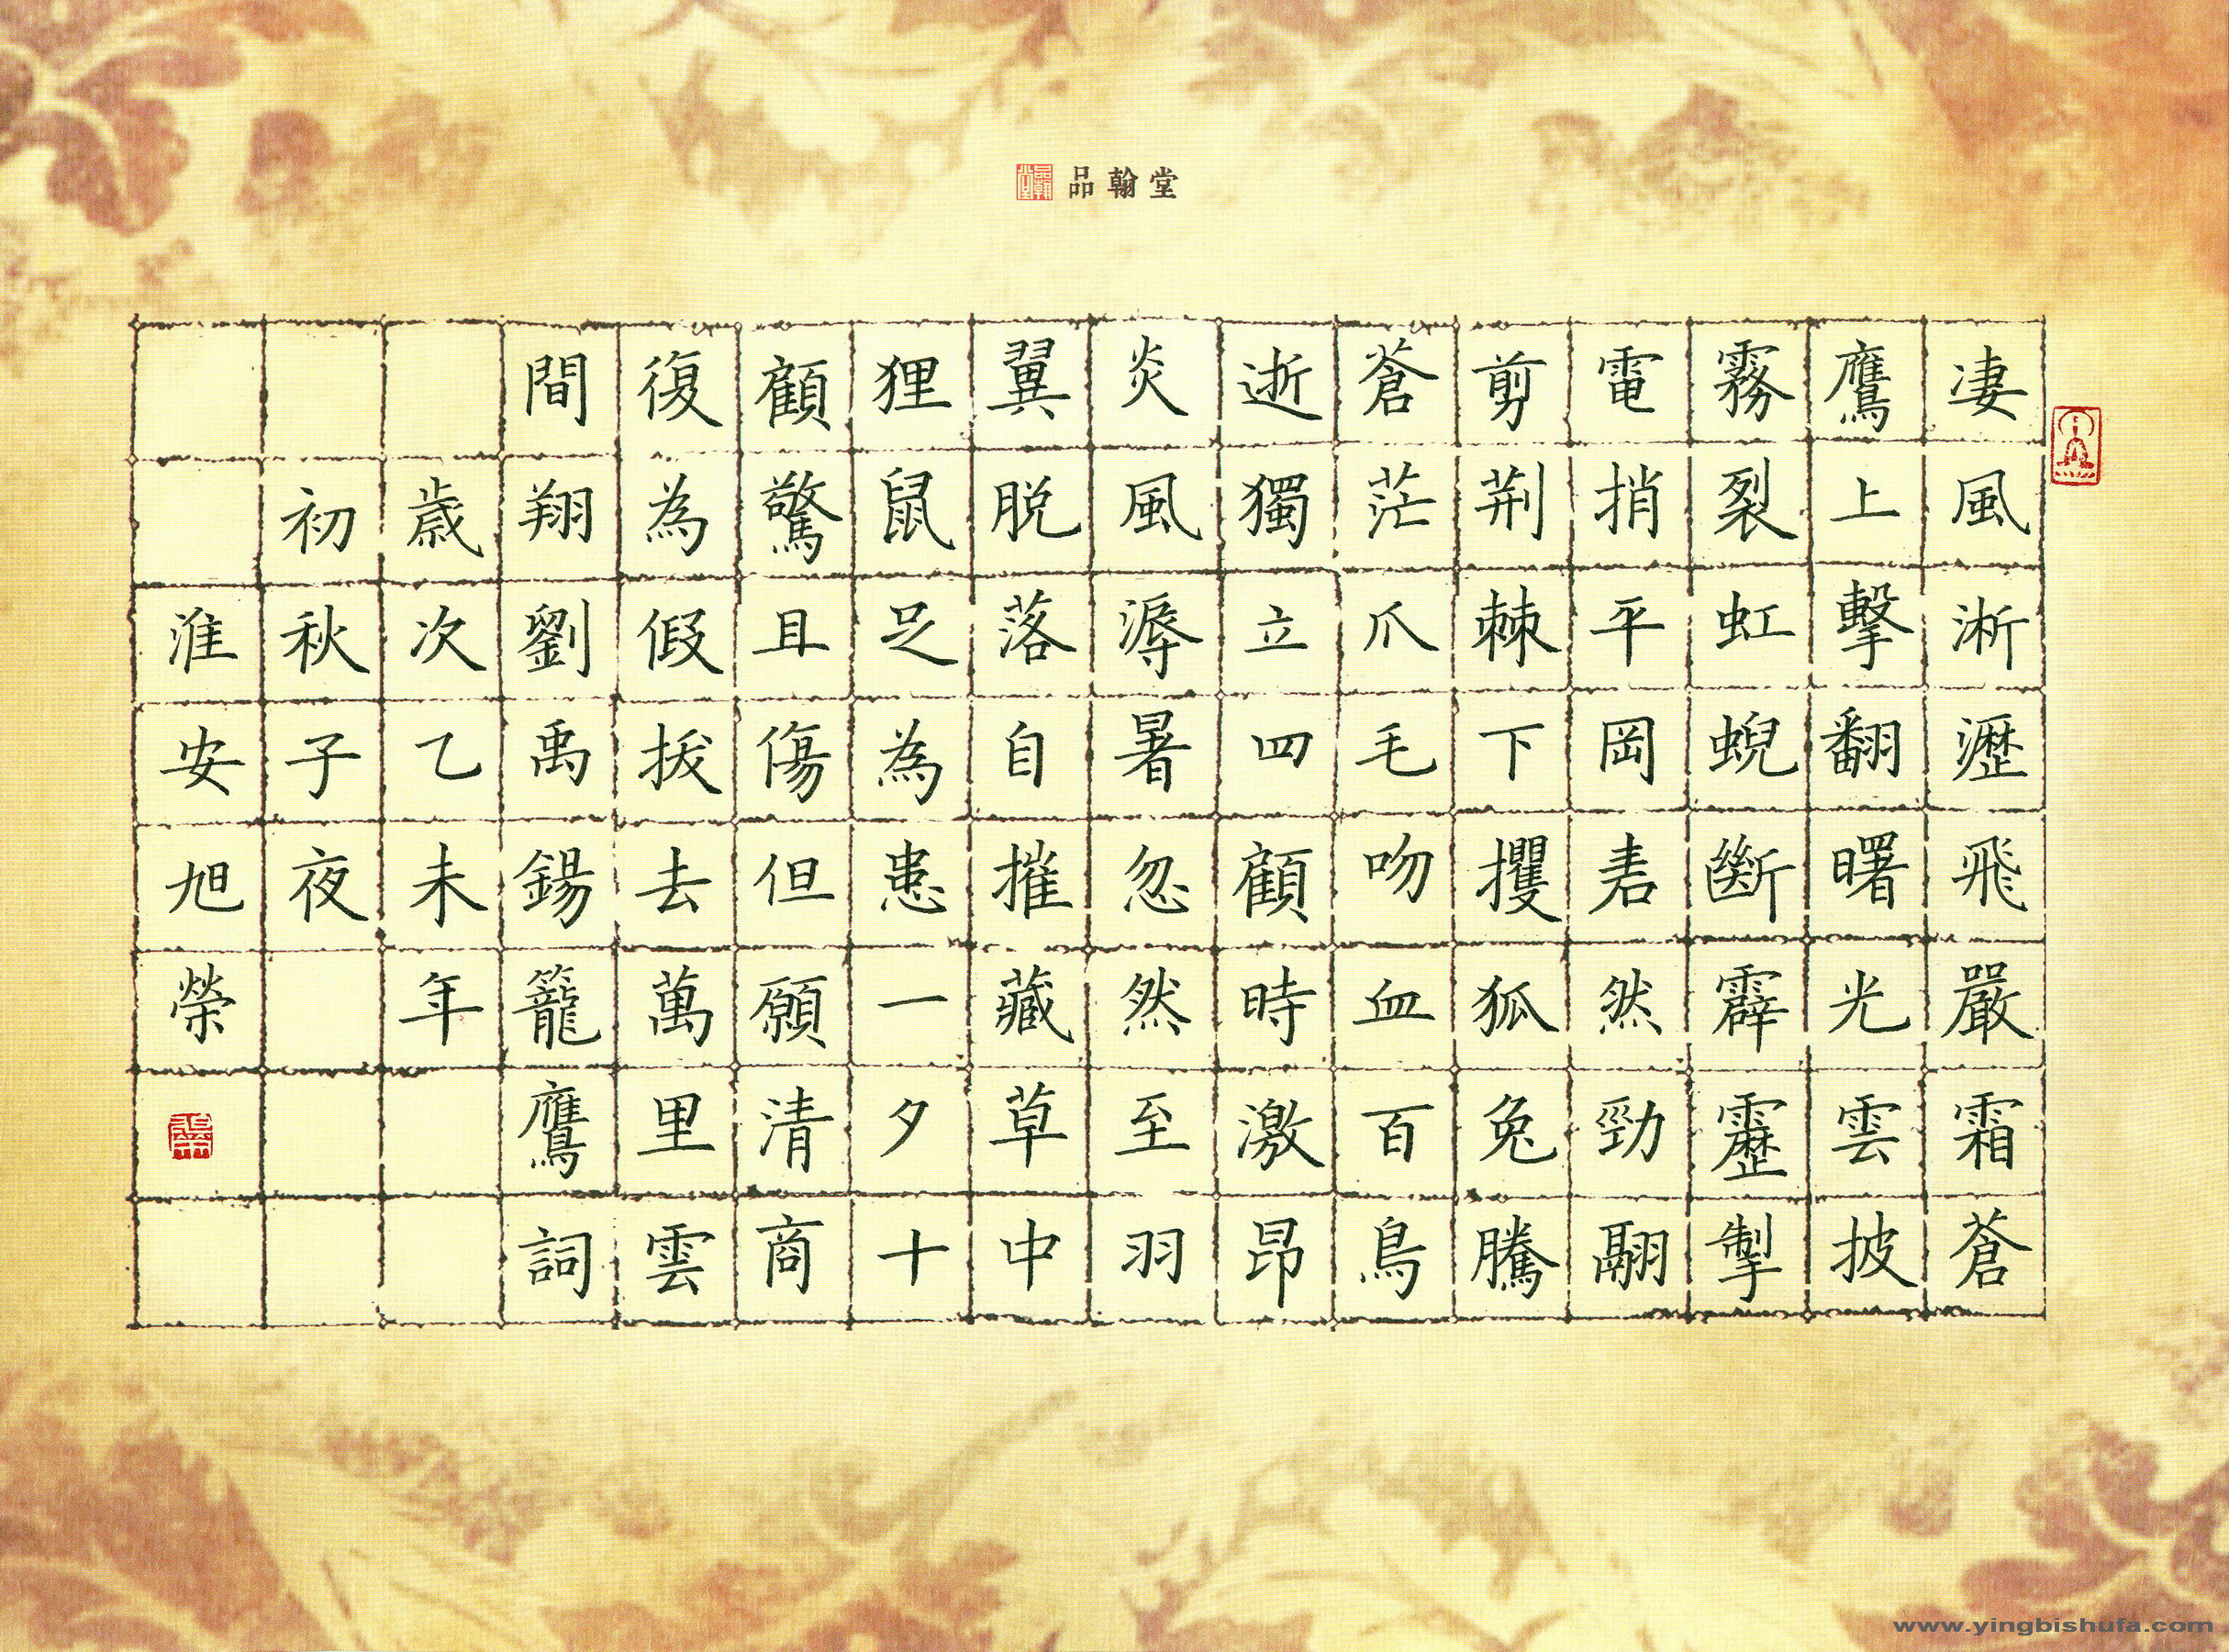 品翰堂
淒風淅瀝飛嚴霜蒼
鷹上擊翻曙光雲披
霧裂虹蜺斷霹靂掣
電捎平岡砉然勁翮
剪荆棘下攫狐兔騰
蒼茫爪毛吻血百鳥
逝獨立四顧時激昂
炎風溽暑忽然至羽
翼脱落自摧藏草中
狸鼠足為患一夕十
顧驚且傷但願清商
復為假拔去萬里雲
間翔劉禹錫籠鷹詞
歲次乙未年
初秋子夜
淮安旭榮
www.yingbishufa.com